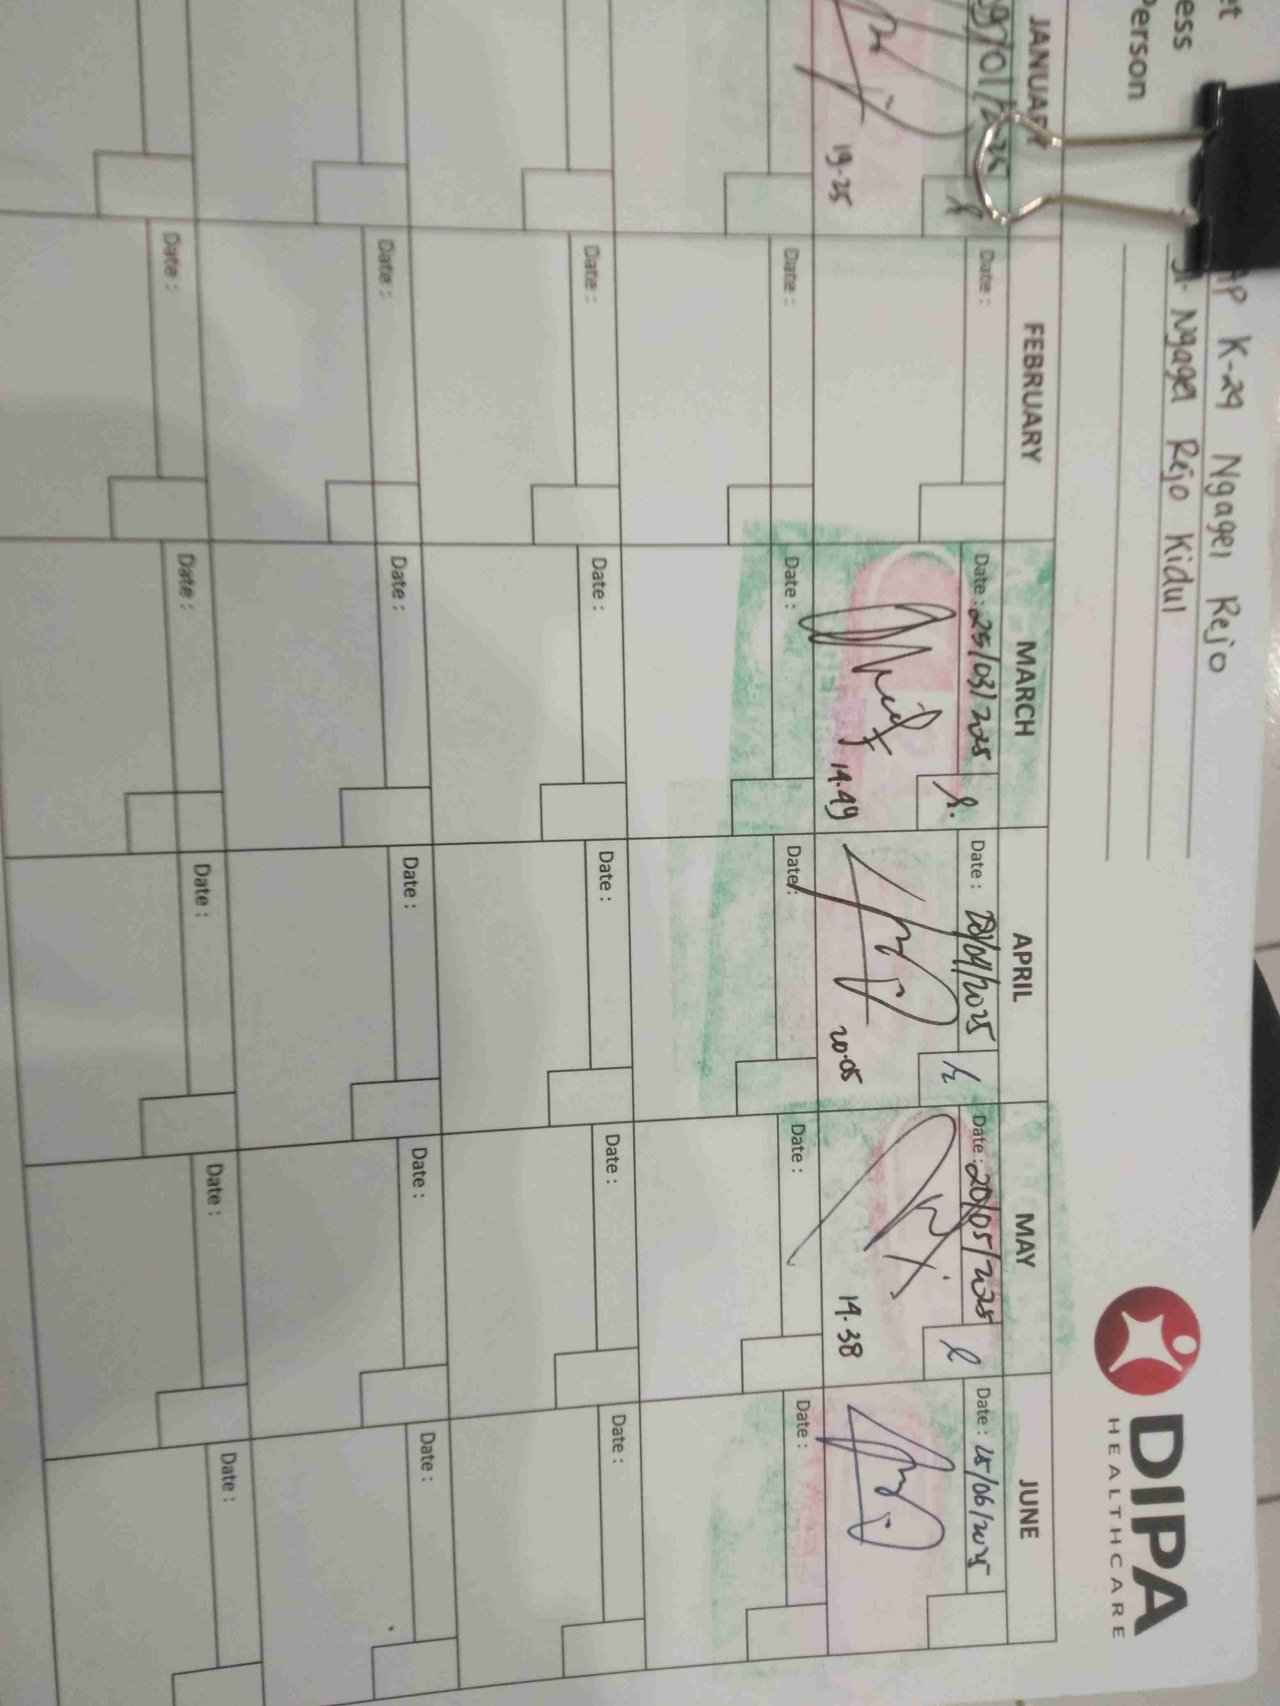 et
ess
Person
AP K-24 Ngagel Rejo
Jl. Ngagel Rejo Kidul
DIPA
HEALTHCARE
JANUARY FEBRUARY MARCH APRIL MAY JUNE
09/01/2025 Date : Date : 25/03/2025 Date : 28/04/2025 Date : 20/05/2025 Date : 25/06/2025
19.25 14.49 20.05 14.38
Date : Date : Date : Date : Date :
Date : Date : Date : Date : Date :
Date : Date : Date : Date : Date :
Date : Date : Date : Date : Date :